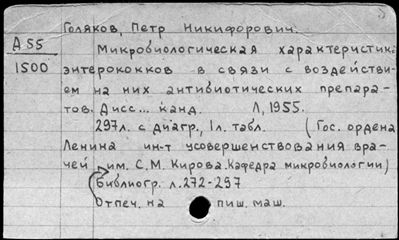 Голяков, Петр Никифорович.
А 55
1500
Микробиологическая характеристика
энтерококков в связи с воздействи-
ем на них антибиотических препара-
тов. Дисс... канд. Л, 1955.
297л. с диагр., 1л. табл. (Гос. ордена
Ленина ин-т усовершенствования вра-
чей им. С.М. Кирова. Кафедра микробиологии)
Библиогр. л. 272-297
Отпеч. на пиш. маш.